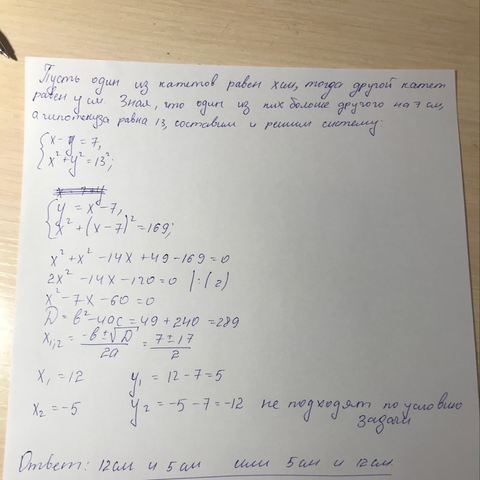 Пусть один из катетов равен x см, тогда другой катет
равен y см. Зная, что один из них больше другого на 7 см,
а гипотенуза равна 13, составим и решим систему:
{x-y=7,
x²+y²=13²;
x = 7+y
{y = x-7,
x²+(x-7)²=169;
x²+x²-14x+49-169=0
2x²-14x-120=0 |:(2)
x²-7x-60=0
D=b²-4ac=49+240=289
x₁,₂ = (-b±√D)/2a = (7±17)/2
x₁=12 y₁=12-7=5
x₂=-5 y₂=-5-7=-12 не подходят по условию
задачи
Ответ: 12см и 5см или 5см и 12см.